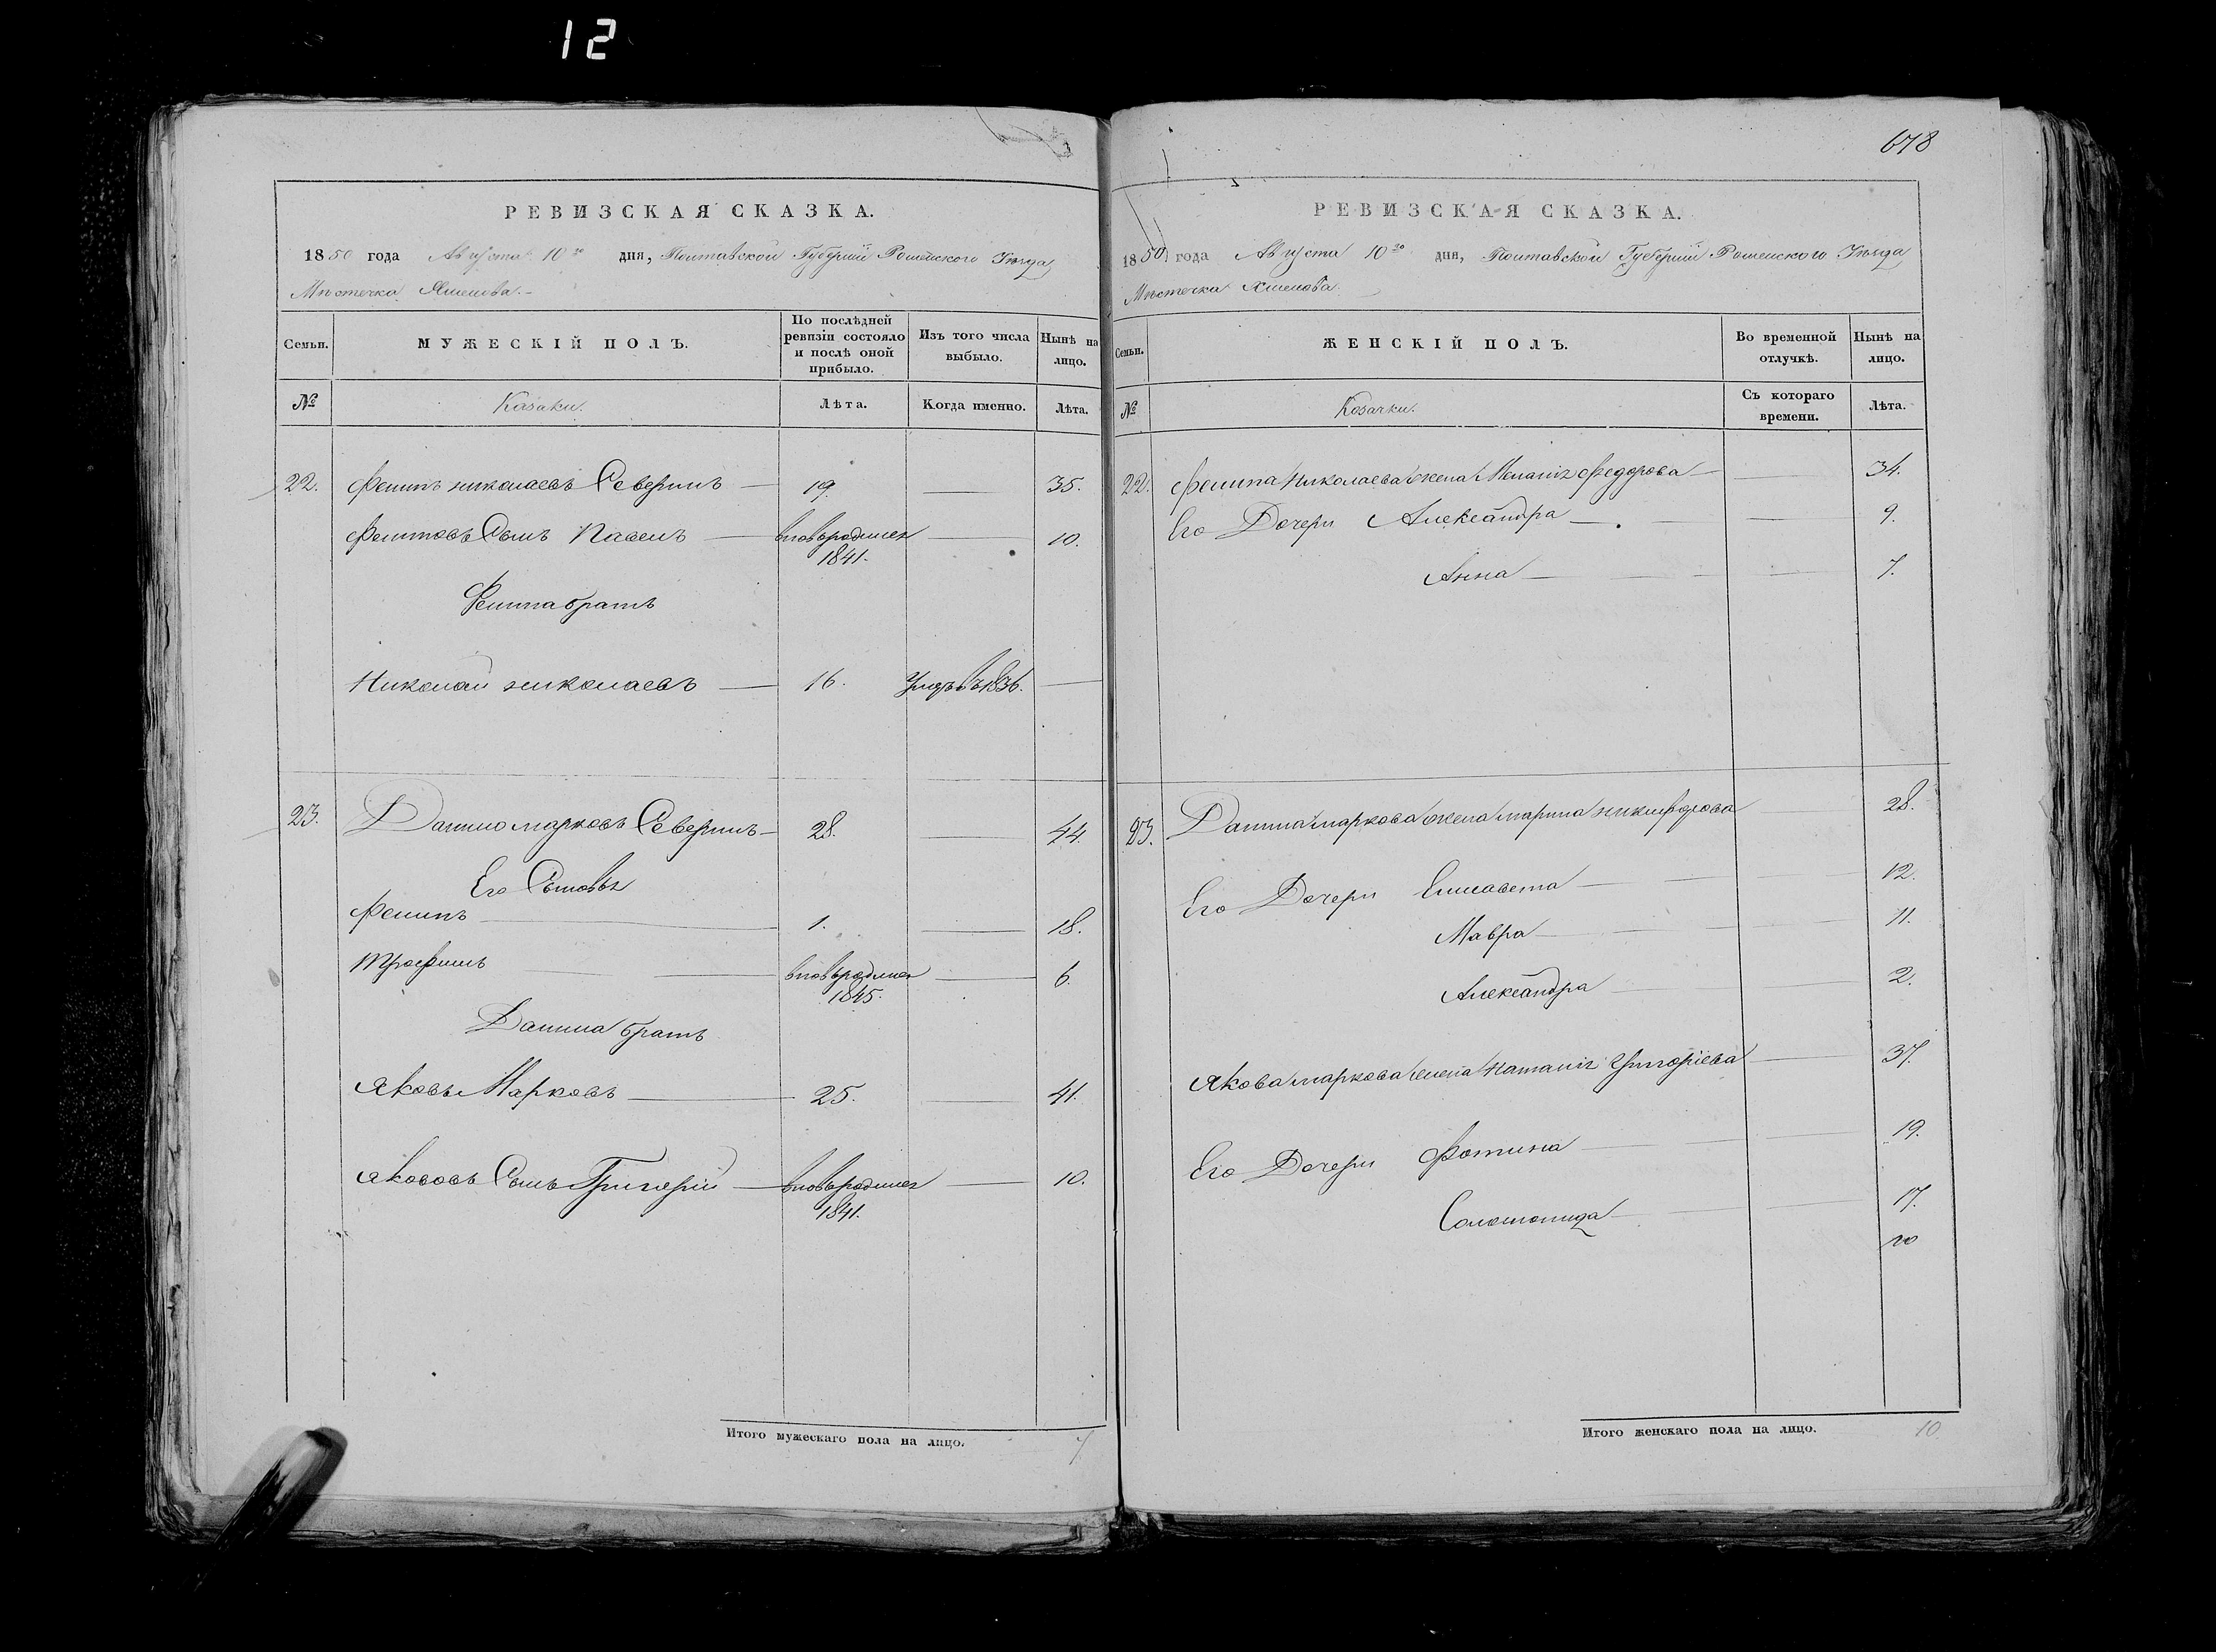 12
678
РЕВИЗСКАЯ СКАЗКА.
1850 года Августа 10го дня, Полтавской Губерніи Роменского Уѣзда,
Мѣстечка
Семьи.
МУЖЕСКІЙ ПОЛЪ.
По послѣдней ревизіи состояло и послѣ оной прибыло.
Изъ того числа выбыло.
Нынѣ на лицо.
№
Казаки.
Лѣта.
Когда именно.
Лѣта.
22. Филипъ николаевъ Северинъ — 19. — 35.
Филиповъ Сынъ Павелъ — вновьродился 1841. — 10.
Филипа братъ
Николай николаевъ — 16. Умеръ въ 1836. —
23. Данило марковъ Северинъ — 28. — 44.
Его Сыновья
Филипъ — 1. — 18.
Трофимъ — вновьродился 1845. — 6.
Данила братъ
Яковъ Марковъ — 25. — 41.
Якововъ Сынъ Григорій — вновьродился 1841. — 10.
Итого мужескаго пола на лицо. 7
РЕВИЗСКАЯ СКАЗКА.
1850 года Августа 10го дня, Полтавской Губерніи Роменского Уѣзда
Мѣстечка
Семьи.
ЖЕНСКІЙ ПОЛЪ.
Во временной отлучкѣ.
Нынѣ на лицо.
№
Козачки.
Съ котораго времени.
Лѣта.
22. Филипа Николаева жена Меланія Федорова — 34.
Его Дочери Александра — 9.
Анна — 7.
23. Данила маркова жена марина никифорова — 28.
Его Дочери Елисавета — 12.
Мавра — 11.
Александра — 2.
Якова маркова жена Наталія Григоріева — 37.
Его Дочери Фотина — 19.
Соломонида — 17.
Итого женскаго пола на лицо. 10.